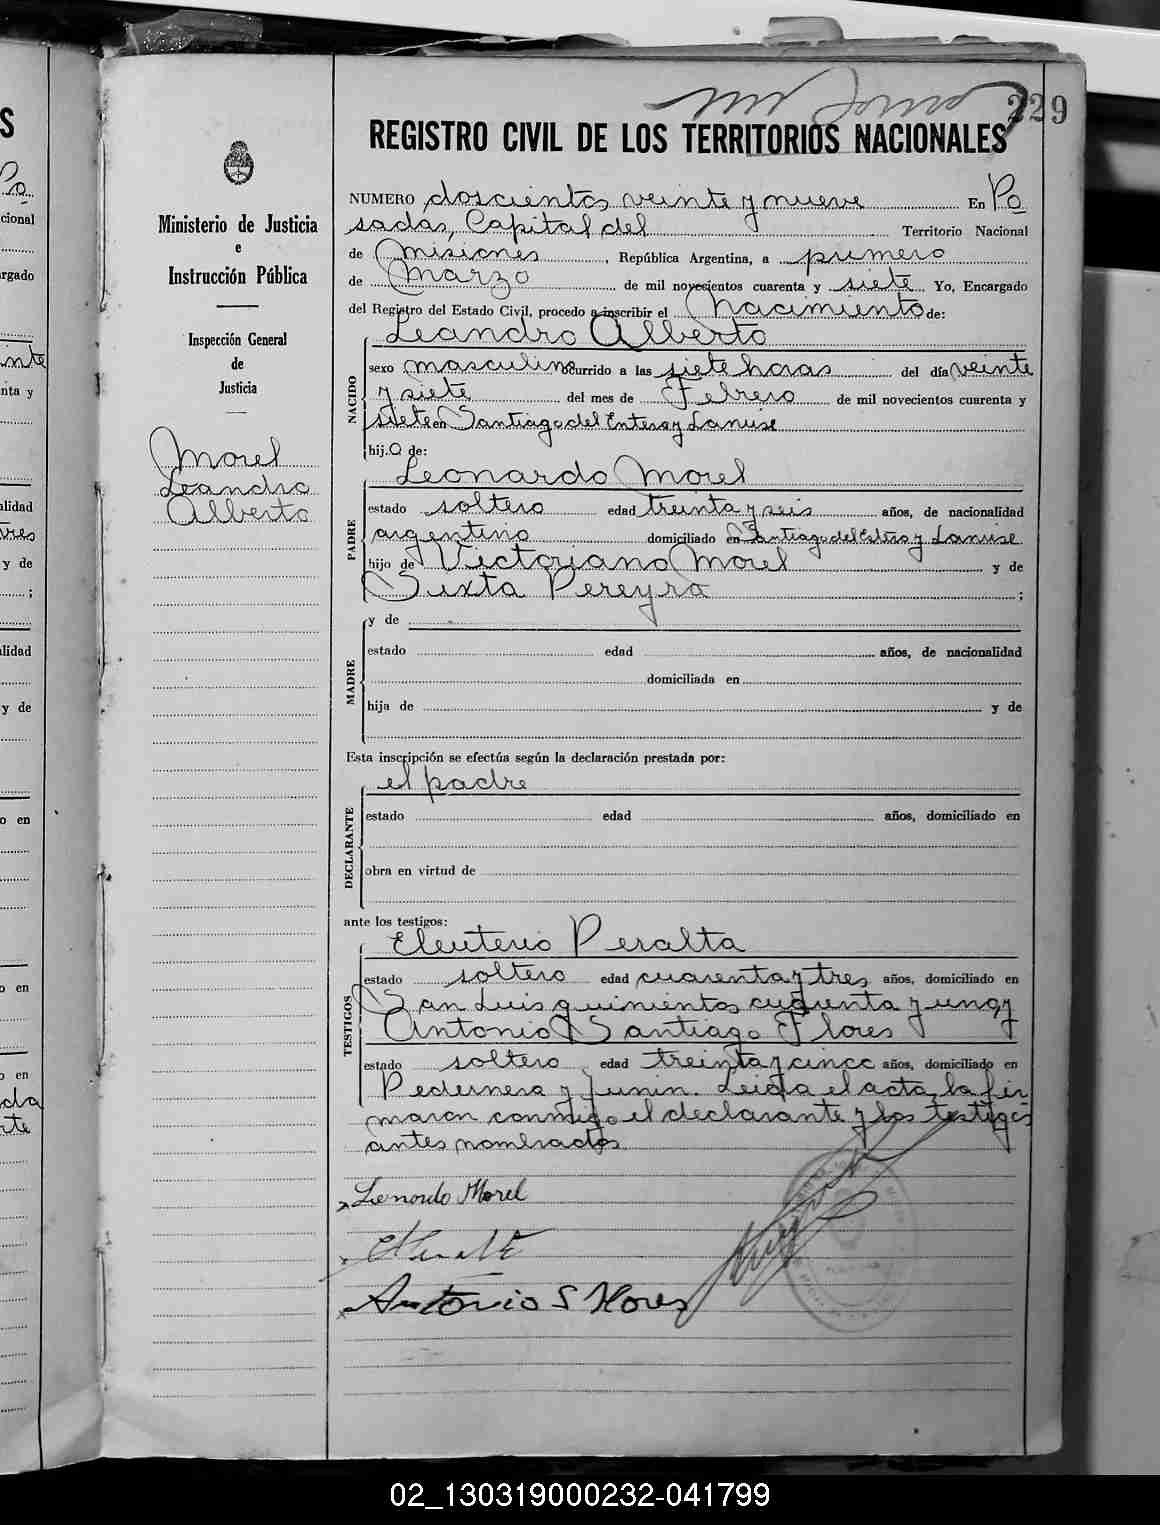 229
REGISTRO CIVIL DE LOS TERRITORIOS NACIONALES
Ministerio de Justicia
e
Instrucción Pública
Inspección General
de
Justicia
Morel
Leandro
Alberto
NUMERO doscientos veinte y nueve En Po
sadas, Capital del Territorio Nacional
de Misiones, República Argentina, a primero
de Marzo de mil novecientos cuarenta y siete Yo, Encargado
del Registro del Estado Civil, procedo a inscribir el Nacimiento de:
Leandro Alberto
NACIDO
sexo masculino ocurrido a las siete horas del día veinte
y siete del mes de Febrero de mil novecientos cuarenta y
siete en Santiago del Estero y Lanuse
hij.o de:
Leonardo Morel
PADRE
estado soltero edad treinta y seis años, de nacionalidad
argentino domiciliado en Santiago del Estero y Lanuse
hijo de Victoriano Morel y de
Sixta Pereyra ;
y de
MADRE
estado edad años, de nacionalidad
domiciliada en
hija de y de
Esta inscripción se efectúa según la declaración prestada por:
el padre
DECLARANTE
estado edad años, domiciliado en
obra en virtud de
ante los testigos:
Eleuterio Peralta
TESTIGOS
estado soltero edad cuarenta y tres años, domiciliado en
San Luis quinientos cuarenta y uno, y
Antonio Santiago Flores
estado soltero edad treinta y cinco años, domiciliado en
Pedernera y Junin. Leida el acta, la fir
maron conmigo el declarante y los testigos
antes nombrados
Leonardo Morel
Antonio S Flores
02_130319000232-041799